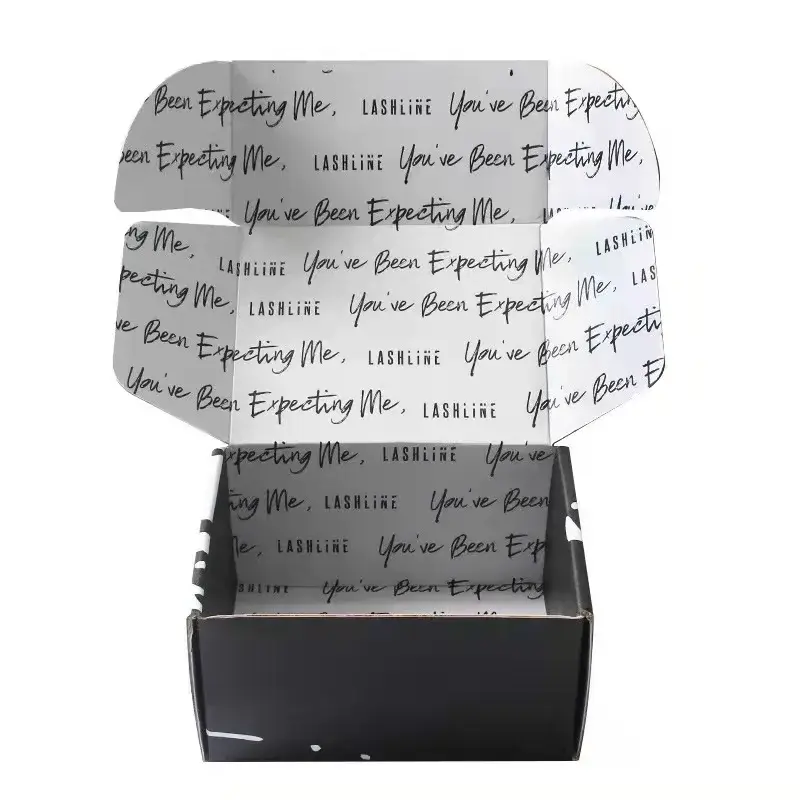 Been Expecting Me, LASHLINE You've Been Expecting
Been Expecting Me, LASHLINE You've Been Expecting Me,
You've Been Expecting Me,
ng Me, LASHLINE You've Been Expecting Me, LASHLIN
pecting Me, LASHLINE You've Been Expecting Me, LAS
ve Been Expecting Me, LASHLINE You've Been Expecti
You've Been Expecting Me, LASHLINE You've Been E
xpecting Me, LASHLINE You've
ing Me, LASHLINE You've Been
e, LASHLINE You've Been Exp
SHLINE You've Been Expecting